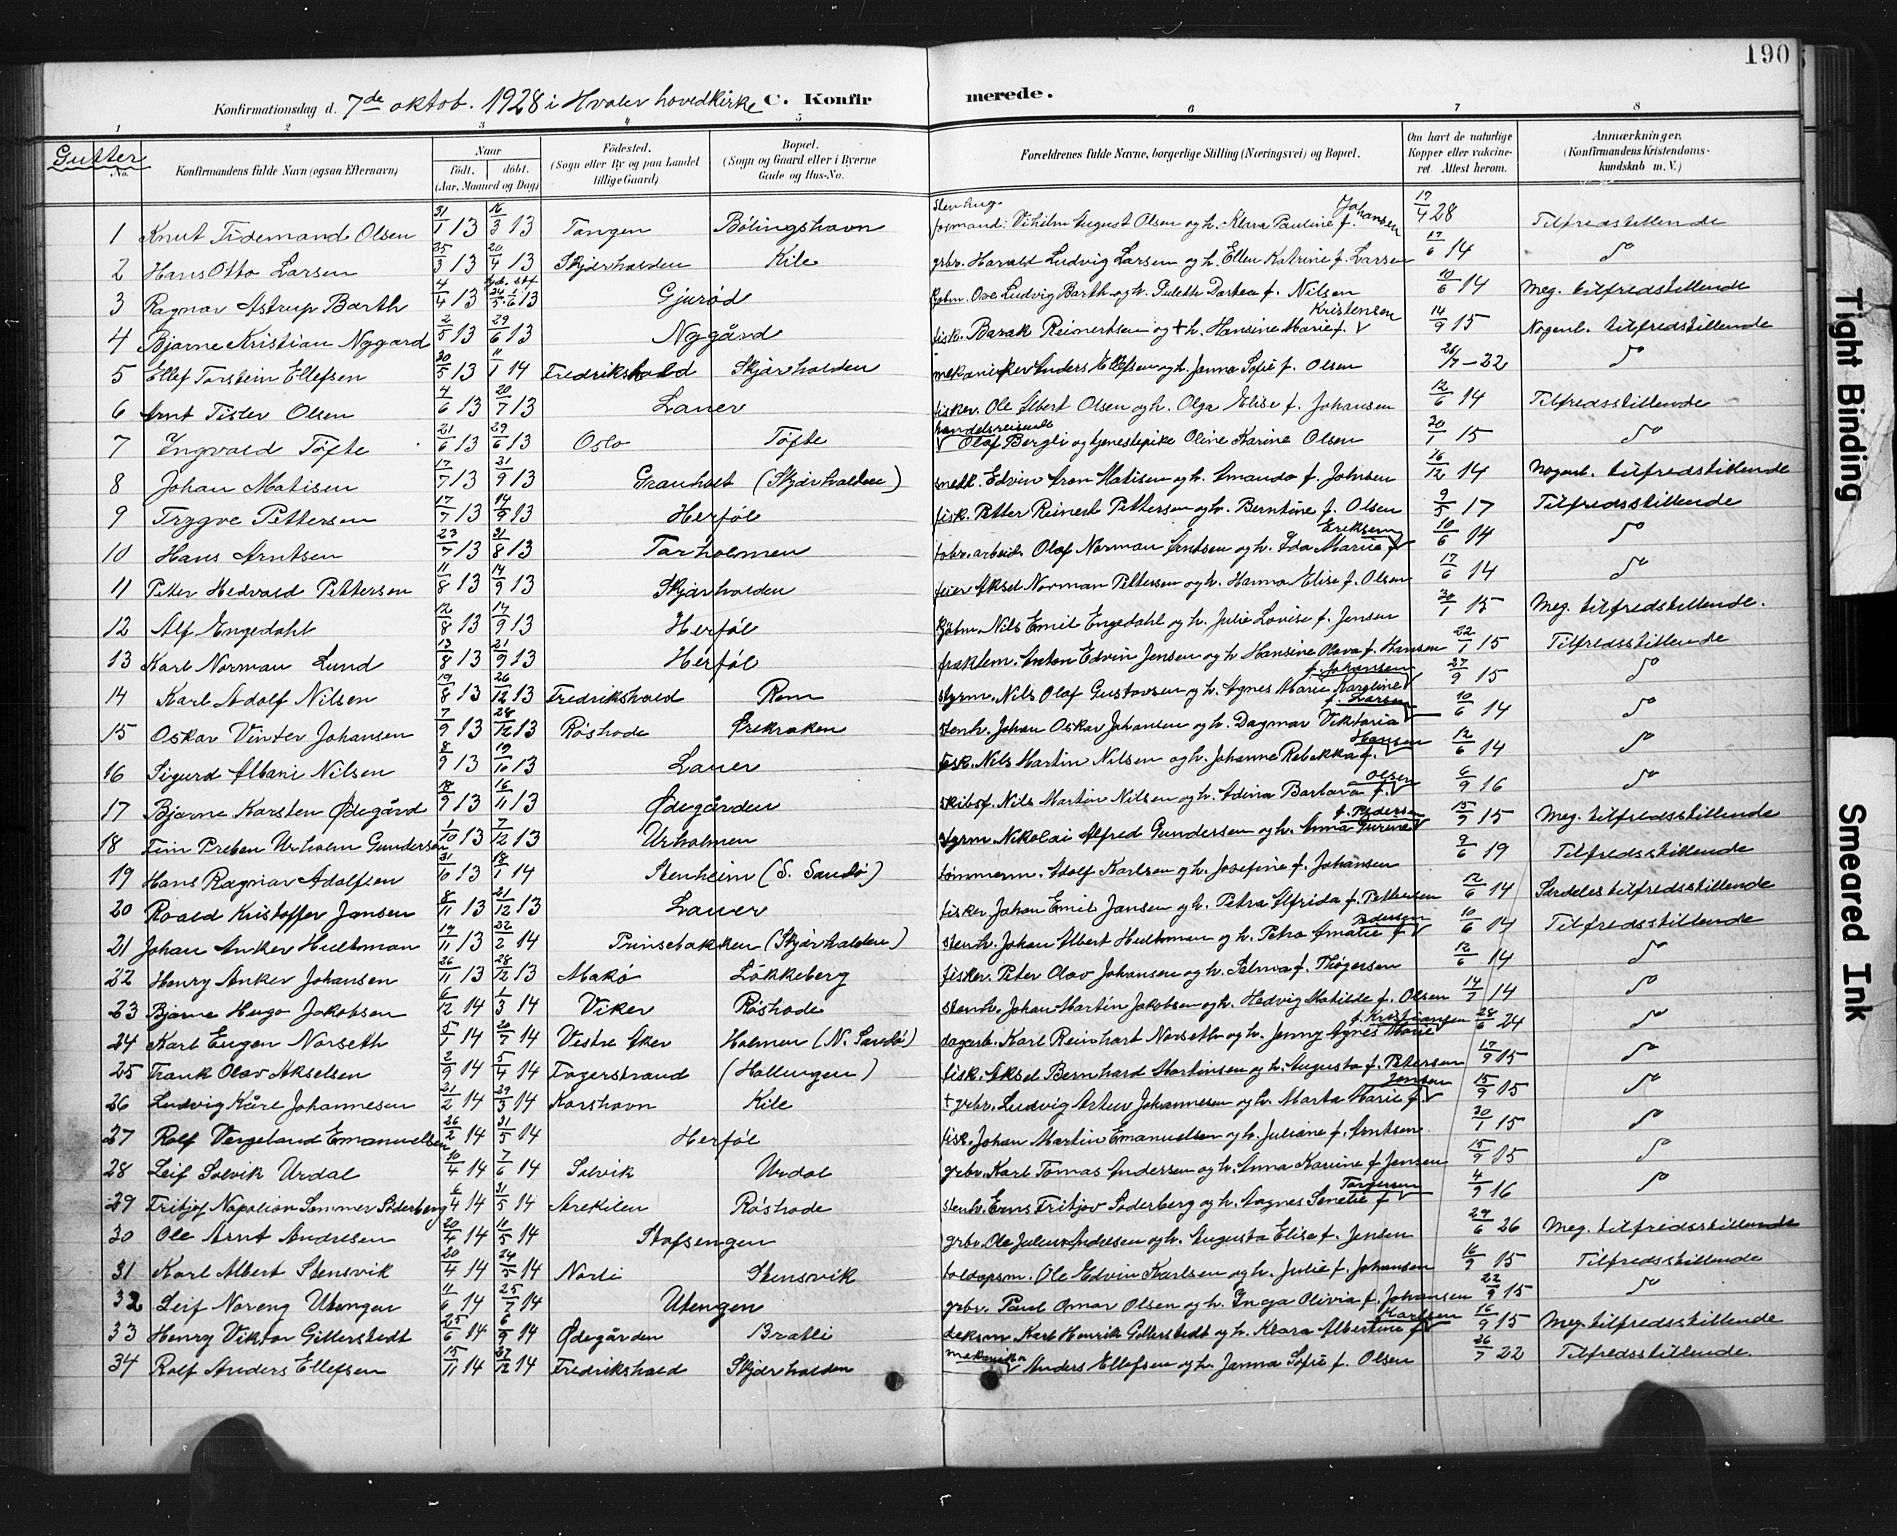 190
Konfirmationsdag d. 7de oktob. 1928 i Hvaler hovedkirke C. Konfirmerede.
1 2 3 4 5 6 7 8
Gutter
No.
Konfirmandens fulde Navn (ogsaa Efternavn)
Naar
født. døbt.
(Aar, Maaned og Dag)
Fødested.
(Sogn eller By og paa Landet tillige Gaard)
Bopæl.
(Sogn og Gaard eller i Byerne Gade og Hus-No.
Forældrenes fulde Navne, borgerlige Stilling (Næringsvei) og Bopæl.
Om havt de naturlige Kopper eller vaccineret Attest herom.
Anmærkninger.
(Konfirmandens Kristendomskundskab m. V.)
1 Knut Tidemand Olsen 31/1 13 16/3 13 Tangen Bölingshavn stenhug. formand. Vilhelm August Olsen og h. Klara Pauline f. Johansen 17/4 28 Tilfredstillende
2 Hans Otto Larsen 25/3 13 20/4 13 Skjærhalden Kile grbr. Harald Ludvig Larsen og h. Ellen Katrine f. Larsen 17/6 14 do
3 Ragnar Astrup Barth 4/4 13 Gjurød kjøbm. Ove Ludvig Barth og h. Dortea f. Nilsen 10/6 14 Meg. tilfredstillende
4 Bjarne Kristian Nygaard 2/5 13 29/6 13 Nygård fisk. Barak Reinertsen og + h. Hansine Marie f. Kristensen 14/9 15 Nogenl. tilfredstillende
5 Ellef Torstein Ellefsen 30/5 13 11/1 14 Fredrikshald Skjærhalden mekaniker Anders Ellefsen og h. Janna Sofie f. Olsen 26/7 - 22 do
6 Arnt Tisler Olsen 4/6 13 20/7 13 Lauer fisker. Ole Albert Olsen og h. Olga Elise f. Johansen 12/6 14 Tilfredsstillende
7 Ingvald Töfte 21/6 13 29/6 13 Oslo Töfte handelsreisende Olaf Bergli og tjenestepike Oline Karine Olsen 20/1 15 do
8 Johan Matisen 17/7 13 21/9 13 Granholt (Skjærhalden) snekk. Edvin Aron Matisen og h. Amanda f. Johnsen 16/12 14 Nogenl. tilfredstillende
9 Trygve Pettersen 17/7 13 14/9 13 Herføl fisk. Petter Reinert Pettersen og h. Berntine f. Olsen 9/5 17 Tilfredsstillende
10 Hans Arntsen 27/7 13 31/8 13 Tarholmen fabr. arbeid. Olaf Norman Arntsen og h. Ida Marie f. Eriksen 10/6 14 do
11 Peter Hedvald Pettersen 11/8 13 14/9 13 Skjærhalden feier Aksel Norman Pettersen og h. Hanna Elise f. Olsen 17/6 14 do
12 Alf Engedahl 12/8 13 14/9 13 Herføl kjöbm. Nils Emil Engedahl og h. Julie Lovise f. Jensen 30/1 15 Meg. tilfredstillende.
13 Karl Norman Lund 13/8 13 21/9 13 Herføl fraktem. Anton Edvin Jensen og h. Hansine Olava f. Hansen 22/1 15 Tilfredsstillende
14 Karl Adolf Nilsen 19/8 13 26/12 13 Fredrikshald Rom styrm. Nils Olaf Gustavsen og h. Agnes Marie Karoline f. Johansen 27/9 15 do
15 Oskar Vinter Johansen 7/9 13 28/12 13 Røshode Ørekroken stenh. Johan Oskar Johansen og h. Dagmar Viktoria f. Larsen 10/6 14 do
16 Sigurd Albani Nilsen 8/9 13 19/10 13 Lauer fisk. Nils Martin Nilsen og h. Johanne Rebekka f. Hansen 12/6 14 do
17 Bjarne Karsten Ødegård 18/9 13 16/11 13 Ødegården skibsf. Nils Martin Nilsen og h. Adina Barbara f. Olsen 6/9 16 do
18 Finn Preben Urholm Gundersen 1/10 13 7/12 13 Urholmen styrm Nikolai Alfred Gundersen og h. Anna Gurine f. Pedersen 15/9 15 Meg. tilfredsstillende
19 Hans Ragnar Adolfsen 13 18/1 14 Stenheim (S. Sandø) tømmerm. Adolf Karlsen og h. Josefine f. Johansen 9/6 19 Tilfredsstillende
20 Roald Kristoffer Jansen 8/11 13 21/12 13 Lauer fisker Johan Emil Jansen og h. Petra Alfrida f. Pettersen 12/6 14 Særdeles tilfredsstillende
21 Johan Anker Hultman 19/11 13 22/2 14 Prinsebakken (Skjærhalden) stenh. Johan Albert Hultman og h. Petra Amalie f. Pedersen 10/6 14 Tilfredsstillende
22 Henry Anker Johansen 26/11 13 28/12 13 Makø Løkkeberg fisker. Peter Olav Johansen og h. Selma f. Thøgersen 12/6 14 do
23 Bjarne Hugo Jakobsen 6/12 14 1/3 14 Viker Røshode stenh. Johan Martin Jakobsen og h. Hedvig Matilde f. Olsen 14/7 14 do
24 Karl Eugen Norseth 5/1 14 20/7 14 Vestre Aker Holmen (N. Sandø) dagarb. Karl Reinhart Norseth og h. Jenny Agnes Marie f. Kristiansen 28/6 24 do
25 Frank Olav Akselsen 2/9 14 5/4 14 Fagerstrand (Hollungen) fisk. Aksel Bernhard Martinsen og h. Augusta f. Petersen 17/9 15 do
26 Ludvig Kåre Johannesen 21/2 14 29/3 14 Korshavn Kile + grbr. Ludvig Artur Johannesen og h. Marta Marie f. Jensen 15/9 15 do
27 Rolf Vergeland Emanuelsen 26/2 14 31/5 14 Herføl fisk. Johan Martin Emanuelsen og h. Juliane f. Arntsen 20/1 15 do
28 Leif Solvik Urdal 10/4 14 7/6 14 Solvik Urdal grbr. Karl Tomas Andersen og h. Anna Karine f. Jensen 15/9 15 do
29 Fritjof Napolion Sommer Søderberg 6/4 14 31/5 14 Arekilen Røshode stenh. Erns Fritjov Søderberg og h. Aagnes Senelie f. Torgersen 4/9 16 do
30 Ole Arnt Andresen 20/4 14 11/5 14 Stafsengen grbr. Ole Julius Andresen og h. Augusta Elise f. Jensen 29/6 26 Meg. tilfredsstillende
31 Karl Albert Stensvik 20/4 14 24/5 14 Norli Stensvik toldopsm. Ole Edvin Karlsen og h. Julie f. Johansen 16/9 15 Tilfredsstillende
32 Leif Noreng Utengen 11/6 14 25/7 14 Utengen grbr. Paul Omar Olsen og h. Inga Olivia f. Johansen 22/9 15 do
33 Henry Viktor Gillerstedt 25/6 14 6/9 14 Ødegården Bratli deksm. Karl Henrik Gillerstedt og h. Klara Albertine f. Karlsen 16/9 15 Meg. tilfredsstillende
34 Rolf Anders Ellefsen 15/11 14 27/12 14 Fredrikshald Skjærhalden mekaniker Anders Ellefsen og h. Janna Sofie f. Olsen 26/7 22 Tilfredsstillende.
Tight Binding
Smeared Ink